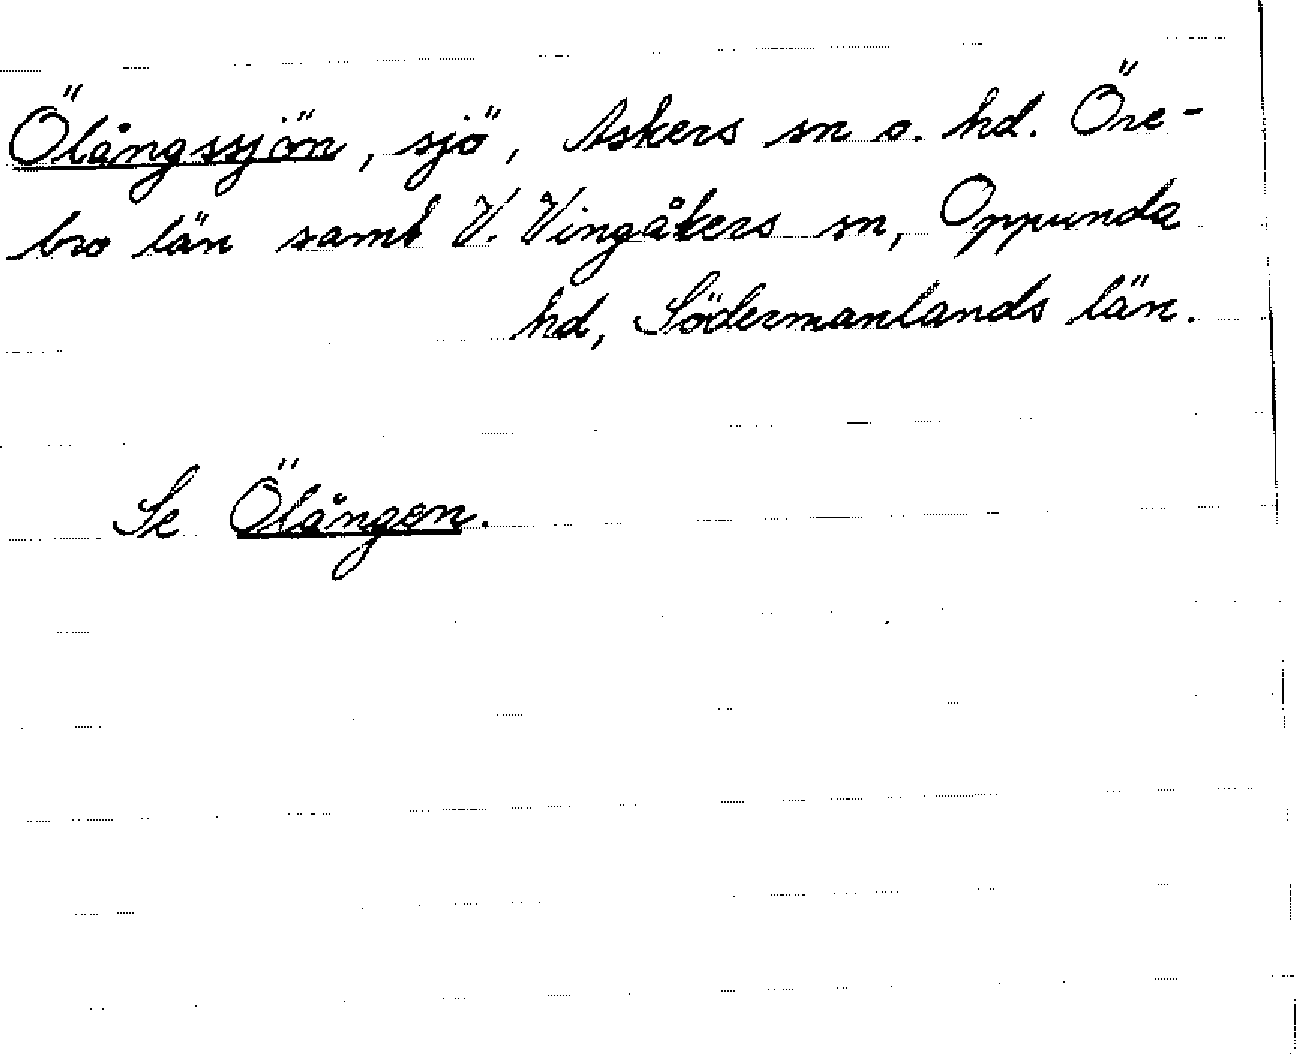 Ölångssjön, sjö, Askers sn o. hd. Öre-
bro län samt V. Vingåkers sn, Oppunda
hd, Södermanlands län.
Se Ölången.